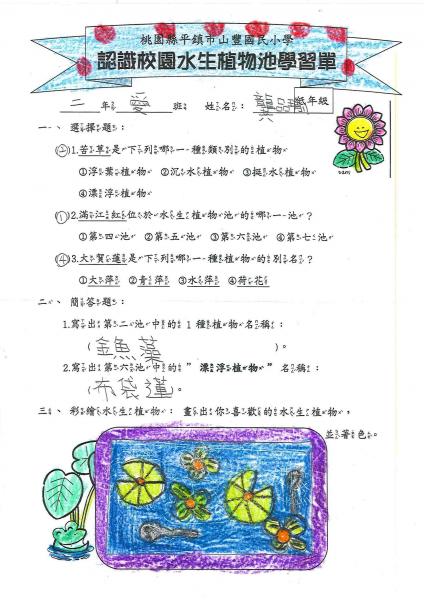 桃園縣平鎮市山豐國民小學
認識校園水生植物池學習單
二 年 愛 班 姓名： 低年級
一、 選擇題：
(2)1.苦草是下列哪一種類別的植物
①浮葉植物 ②沉水植物 ③挺水植物
④漂浮植物
(1)2.滿江紅位於水生植物池的哪一池？
①第四池 ②第五池 ③第六池 ④第七池
(4)3.大賀蓮是下列哪一種植物的別名？
①大萍 ②青萍 ③水萍 ④荷花
二、 簡答題：
1.寫出第二池中的 1 種植物名稱：
(金魚藻)。
2.寫出第六池中的" 漂浮植物" 名稱：
(布袋蓮)。
三、 彩繪水生植物： 畫出你喜歡的水生植物，
並著色。